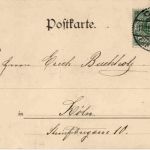 Postkarte.
Herrn Erich Buchholz
in Köln
10.